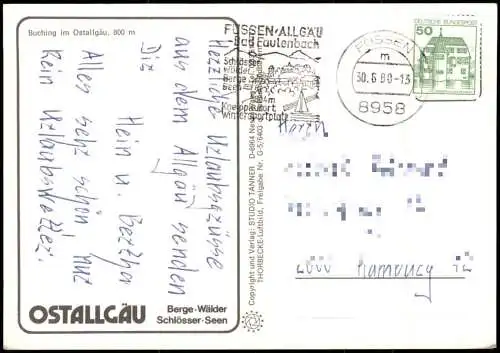 Buching im Ostallgäu, 800 m
Herzliche Urlaubsgrüsse
aus dem Allgäu senden
Dir
Hein u. Bertha
Alles sehr schön nur
kein Urlaubswetter.
OSTALLGÄU
Berge-Wälder
Schlösser-Seen
Copyright und Verlag: STUDIO TANNER
THORBECKE-Luftbild, Freigabe Nr. G-5/6403
FÜSSEN-ALLGÄU
-Bad Faulenbach
Schlösser
Wälder
Berge
Seen
Kneippkurort
Wintersportplatz
FÜSSEN
m
30.6.80-13
8958
DEUTSCHE BUNDESPOST
50
2000 Hamburg